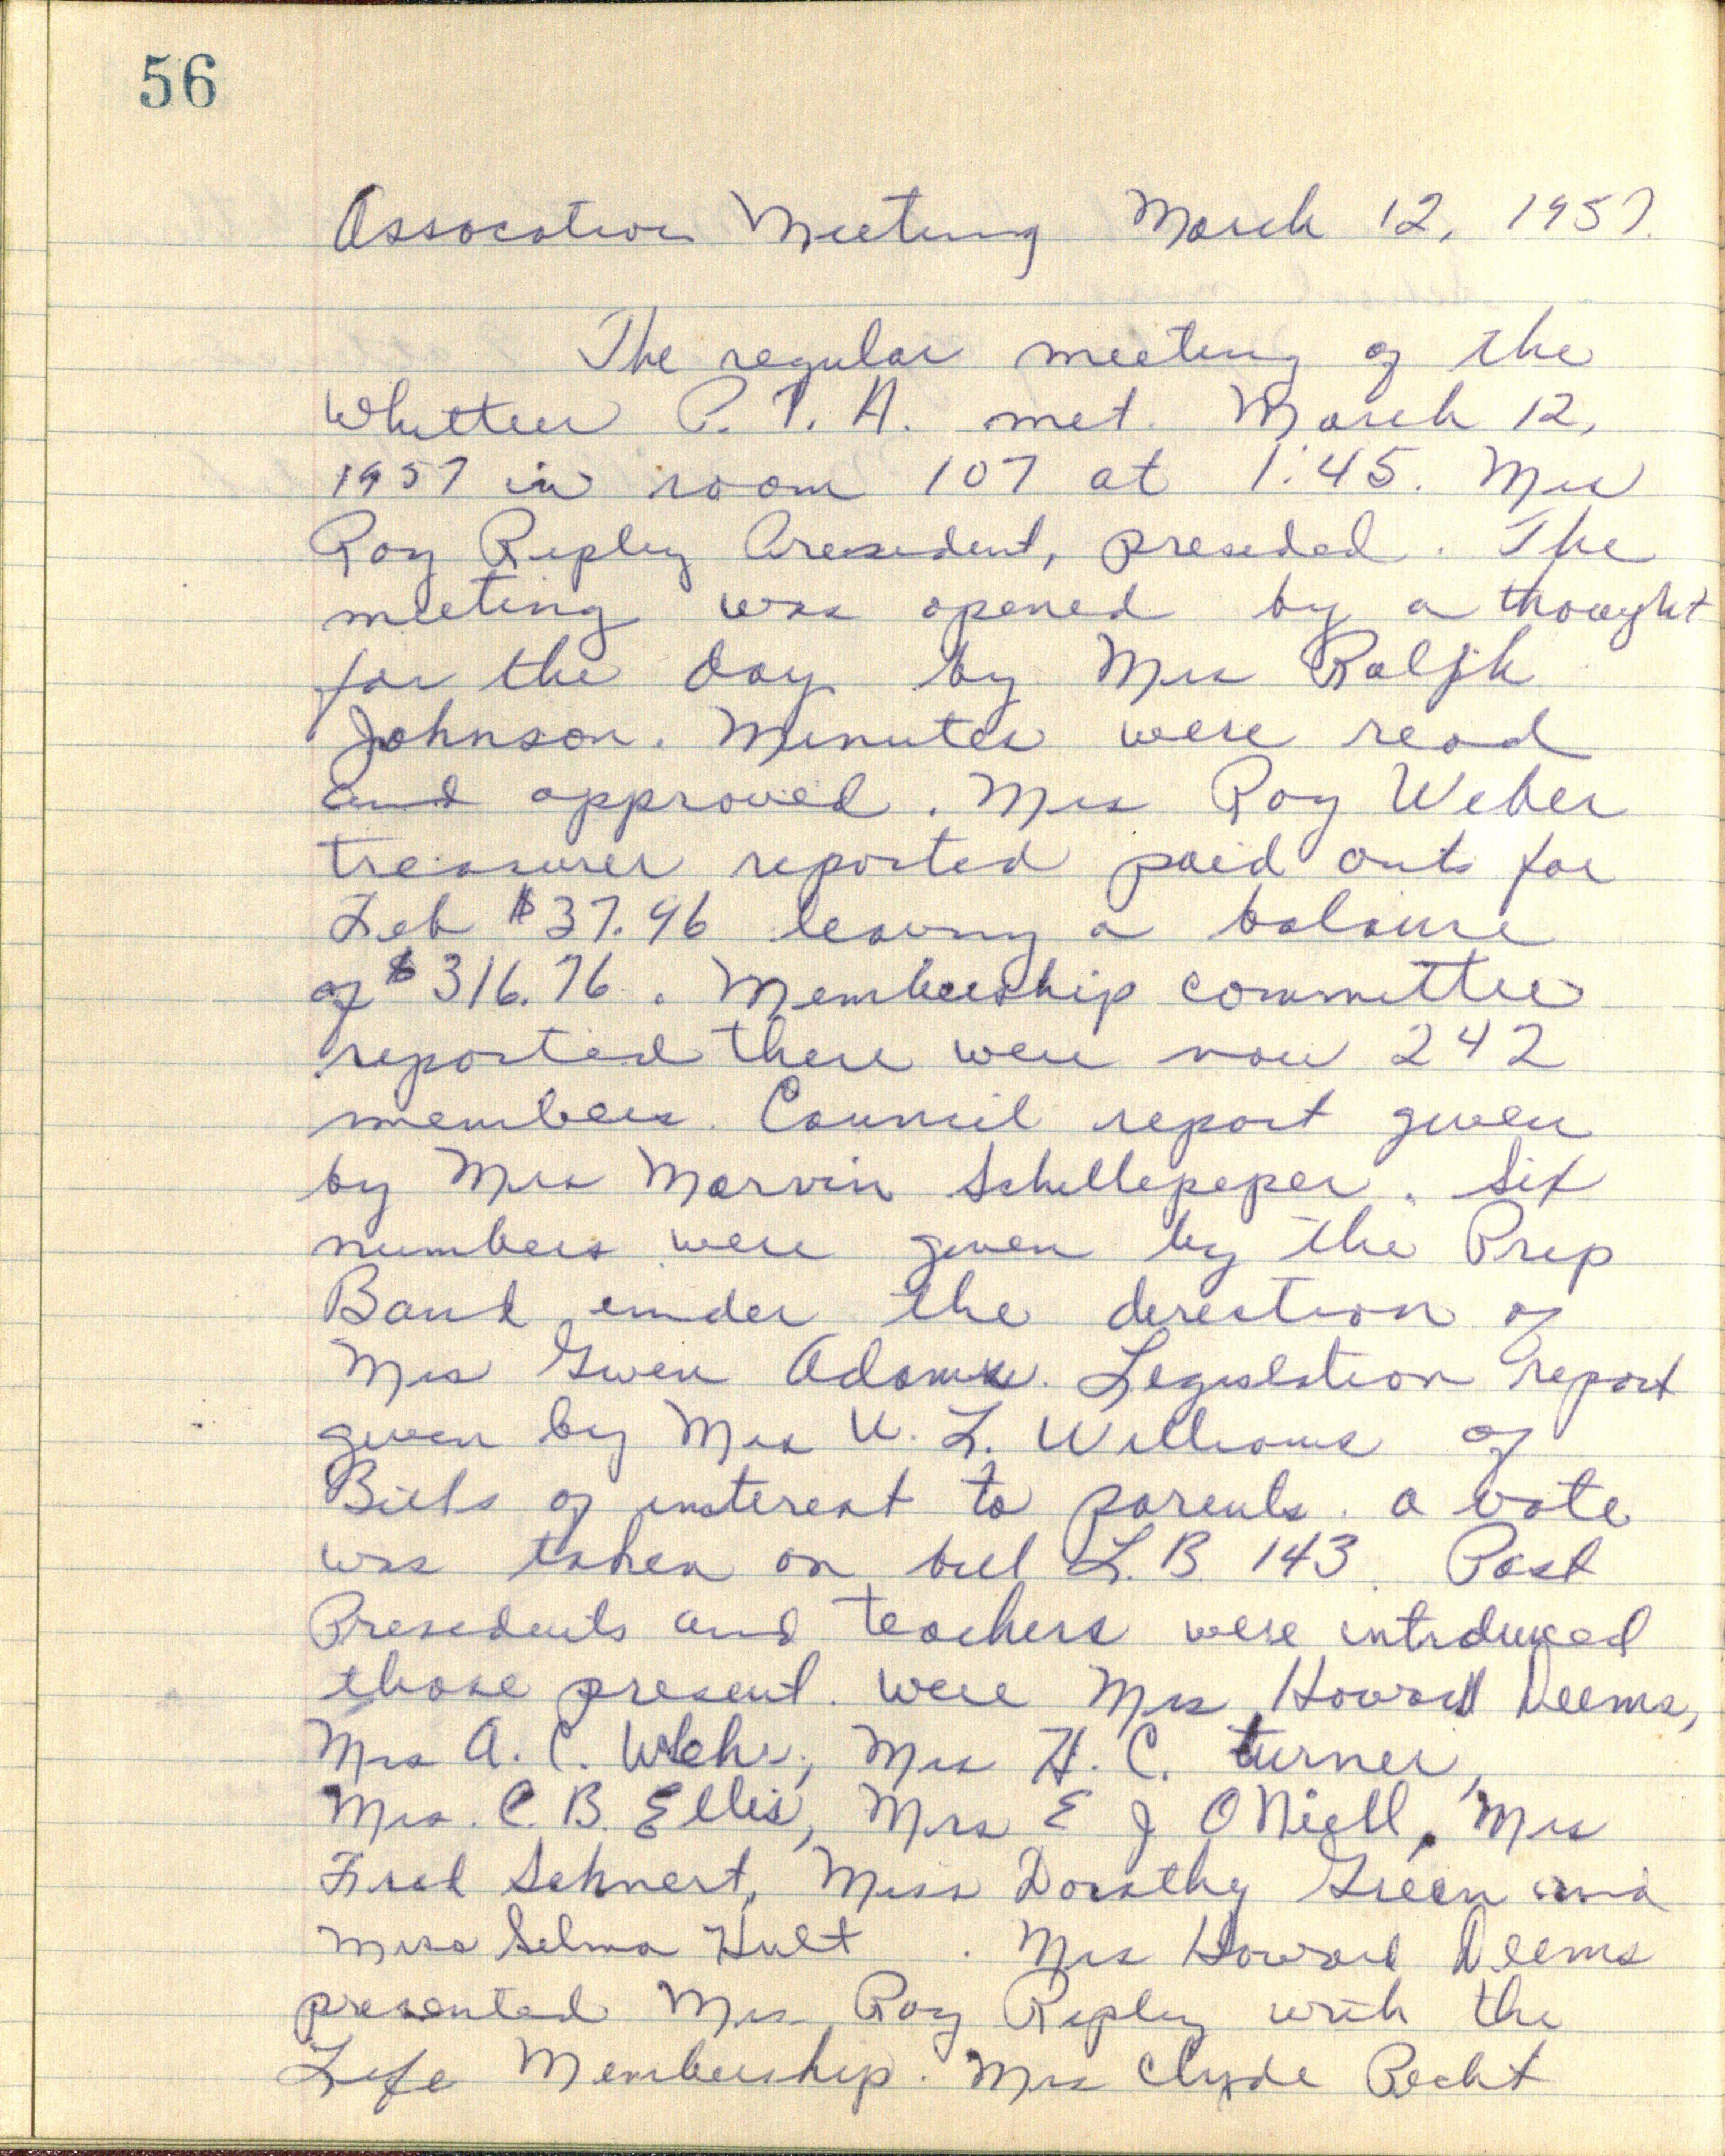 56
Assocation Meeting March 12, 1957.
The regular meeting of the
Whittier P. T. A. met. March 12,
1957 in room 107 at 1:45. Mrs
Roy Ripley President, presided. The
meeting was opened by a thought
for the day by Mrs Ralph
Johnson. Minutes were read
and approved. Mrs Roy Weber
treasurer reported paid outs for
Feb $37.96 leaving a balance
of $316.76. Membership committee
reported there were now 242
members. Council report given
by Mrs Marvin Schellepeper. Six
numbers were given by the Prep
Band under the direction of
Mrs Gwen Adams. Legislation report
given by Mrs V. L. Williams of
Bills of interest to parents. a vote
was taken on bill L.B. 143. Past
Presidents and teachers were introduced
those present. were Mrs Howard Deems,
Mrs A. C. Wehr, Mrs H. C. turner,
Mrs. C. B. Ellis, Mrs E J ONiell, Mrs
Fred Sehnert, Miss Dorothy Green and
Miss Selma Hult. Mrs Howard Deems
presented Mrs Roy Ripley with the
Life Membership. Mrs Clyde Recht